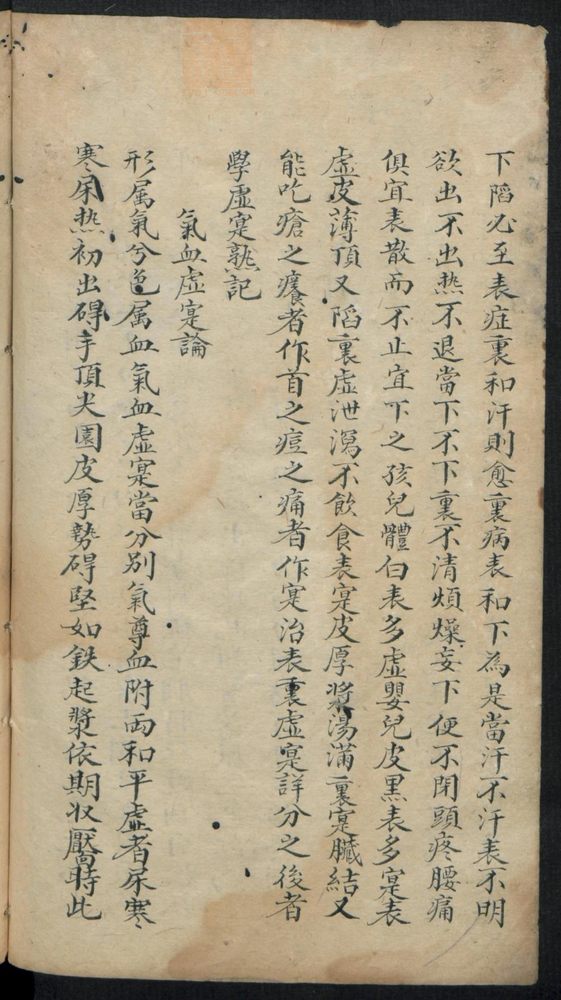 下陷必至表症裏和汗則愈裏病表和下為是當汗不汗表不明
欲出不出热不退當下不下裏不清煩燥妄下便不閉頭疼腰痛
俱宜表散而不止宜下之孩兒體白表多虛嬰兒皮黑表多寔表
虛皮薄頂又陷裏虛泄瀉不飲食表寔皮厚漿湯滿裏寔臟結又
能吃瘡之癢者作首之痘之痛者作寔治表裏虛寔詳分之後者
學虛寔熟記
氣血虛寔論
形属氣兮色属血氣血虛寔當分別氣尊血附兩和平虛者尿寒
寒尿热初出碍手頂尖園皮厚勢碍堅如鉄起漿依期收靨時此